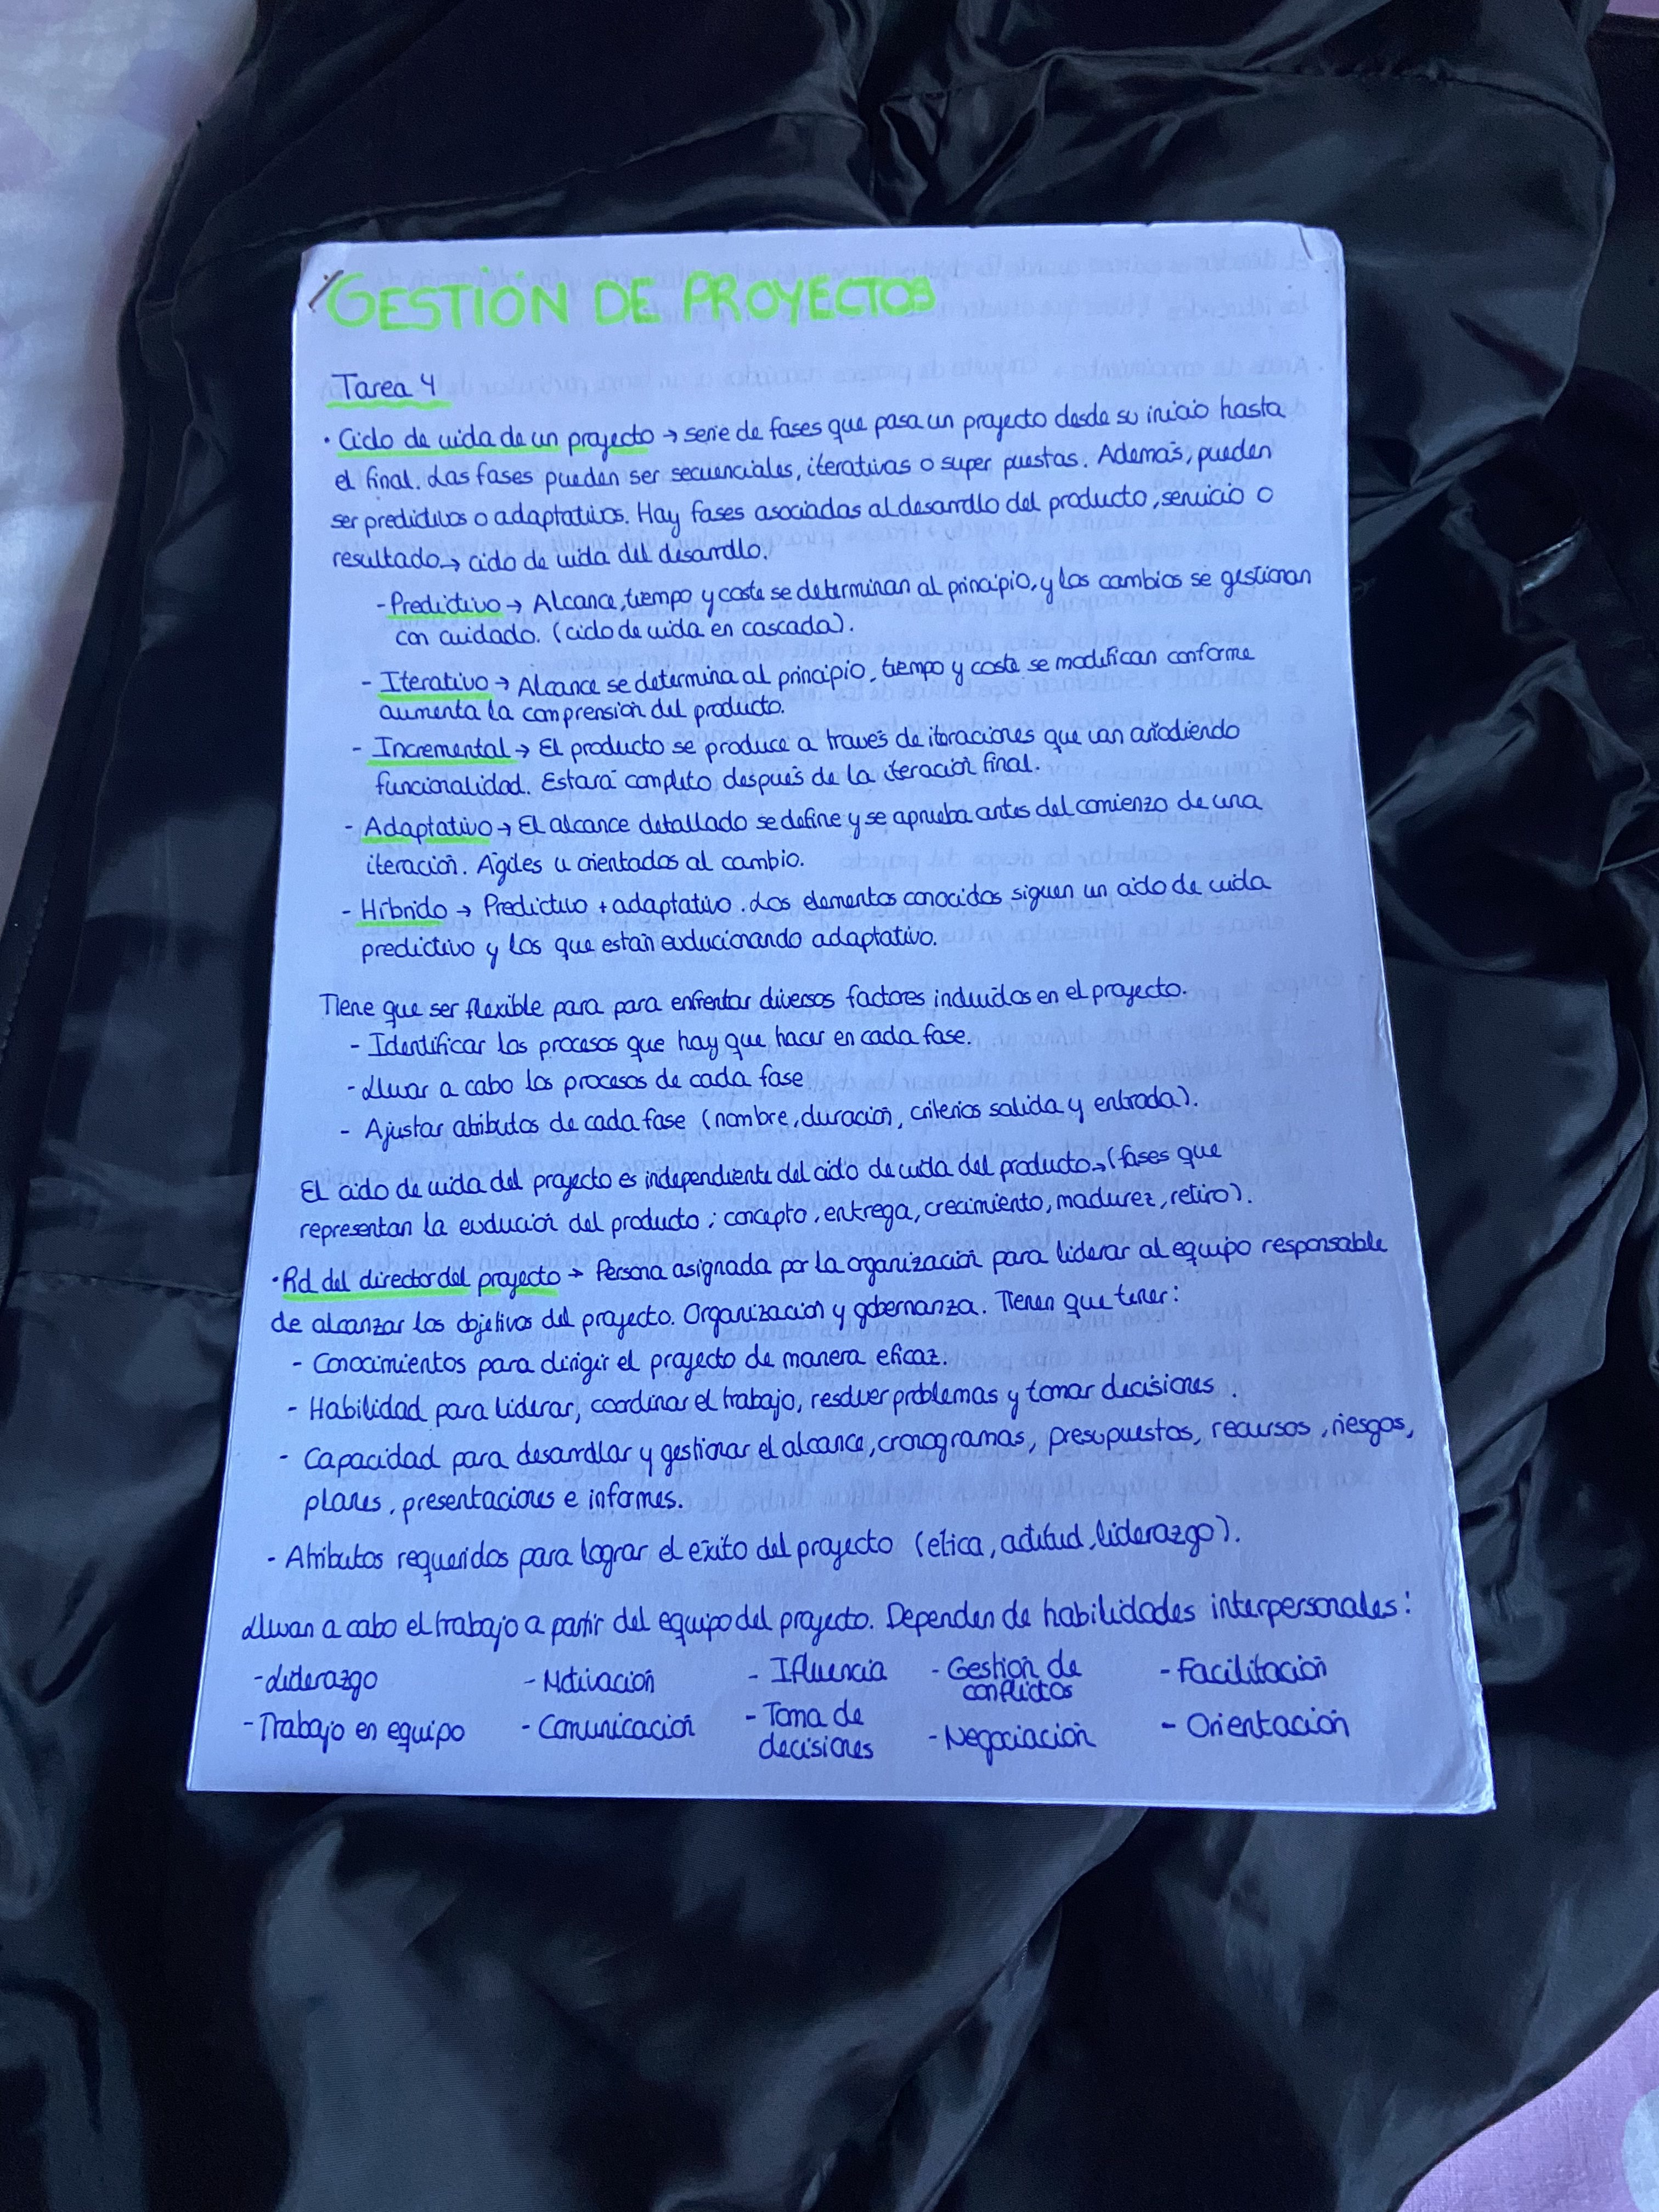 GESTIÓN DE PROYECTOS
Tarea 4
· Ciclo de vida de un proyecto → serie de fases que pasa un proyecto desde su inicio hasta
el final. Las fases pueden ser secuenciales, iterativas o super puestas. Además, pueden
ser predictivos o adaptativos. Hay fases asociadas al desarrollo del producto, servicio o
resultado → ciclo de vida del desarrollo:
- Predictivo → Alcance, tiempo y coste se determinan al principio, y los cambios se gestionan
con cuidado. (ciclo de vida en cascada).
- Iterativo → Alcance se determina al principio, tiempo y coste se modifican conforme
aumenta la comprensión del producto.
- Incremental → El producto se produce a través de iteraciones que van añadiendo
funcionalidad. Estará completo después de la iteración final.
- Adaptativo → El alcance detallado se define y se aprueba antes del comienzo de una
iteración. Agiles u orientados al cambio.
- Híbrido → Predictivo + adaptativo. Los elementos conocidos siguen un ciclo de vida
predictivo y los que están evolucionando adaptativo.
Tiene que ser flexible para para enfrentar diversos factores incluidos en el proyecto.
- Identificar los procesos que hay que hacer en cada fase.
- Llevar a cabo los procesos de cada fase
- Ajustar atibutos de cada fase (nombre, duración, criterios salida y entrada).
El ciclo de vida del proyecto es independiente del ciclo de vida del producto → (fases que
representan la evolución del producto ; concepto, entrega, crecimiento, madurez, retiro).
· Rol del director del proyecto → Persona asignada por la organización para liderar al equipo responsable
de alcanzar los objetivos del proyecto. Organización y gobernanza. Tienen que tener:
- Conocimientos para dirigir el proyecto de manera eficaz.
- Habilidad para liderar, coordinar el trabajo, resolver problemas y tomar decisiones .
- Capacidad para desarrollar y gestionar el alcance, cronogramas, presupuestos, recursos, riesgos,
planes, presentaciones e informes.
- Atributos requeridos para lograr el éxito del proyecto (ética, actitud, liderazgo).
Llevan a cabo el trabajo a partir del equipo del proyecto. Dependen de habilidades interpersonales:
- Liderazgo - Motivación - Influencia - Gestión de conflictos - Facilitación
- Trabajo en equipo - Comunicación - Toma de decisiones - Negociación - Orientación